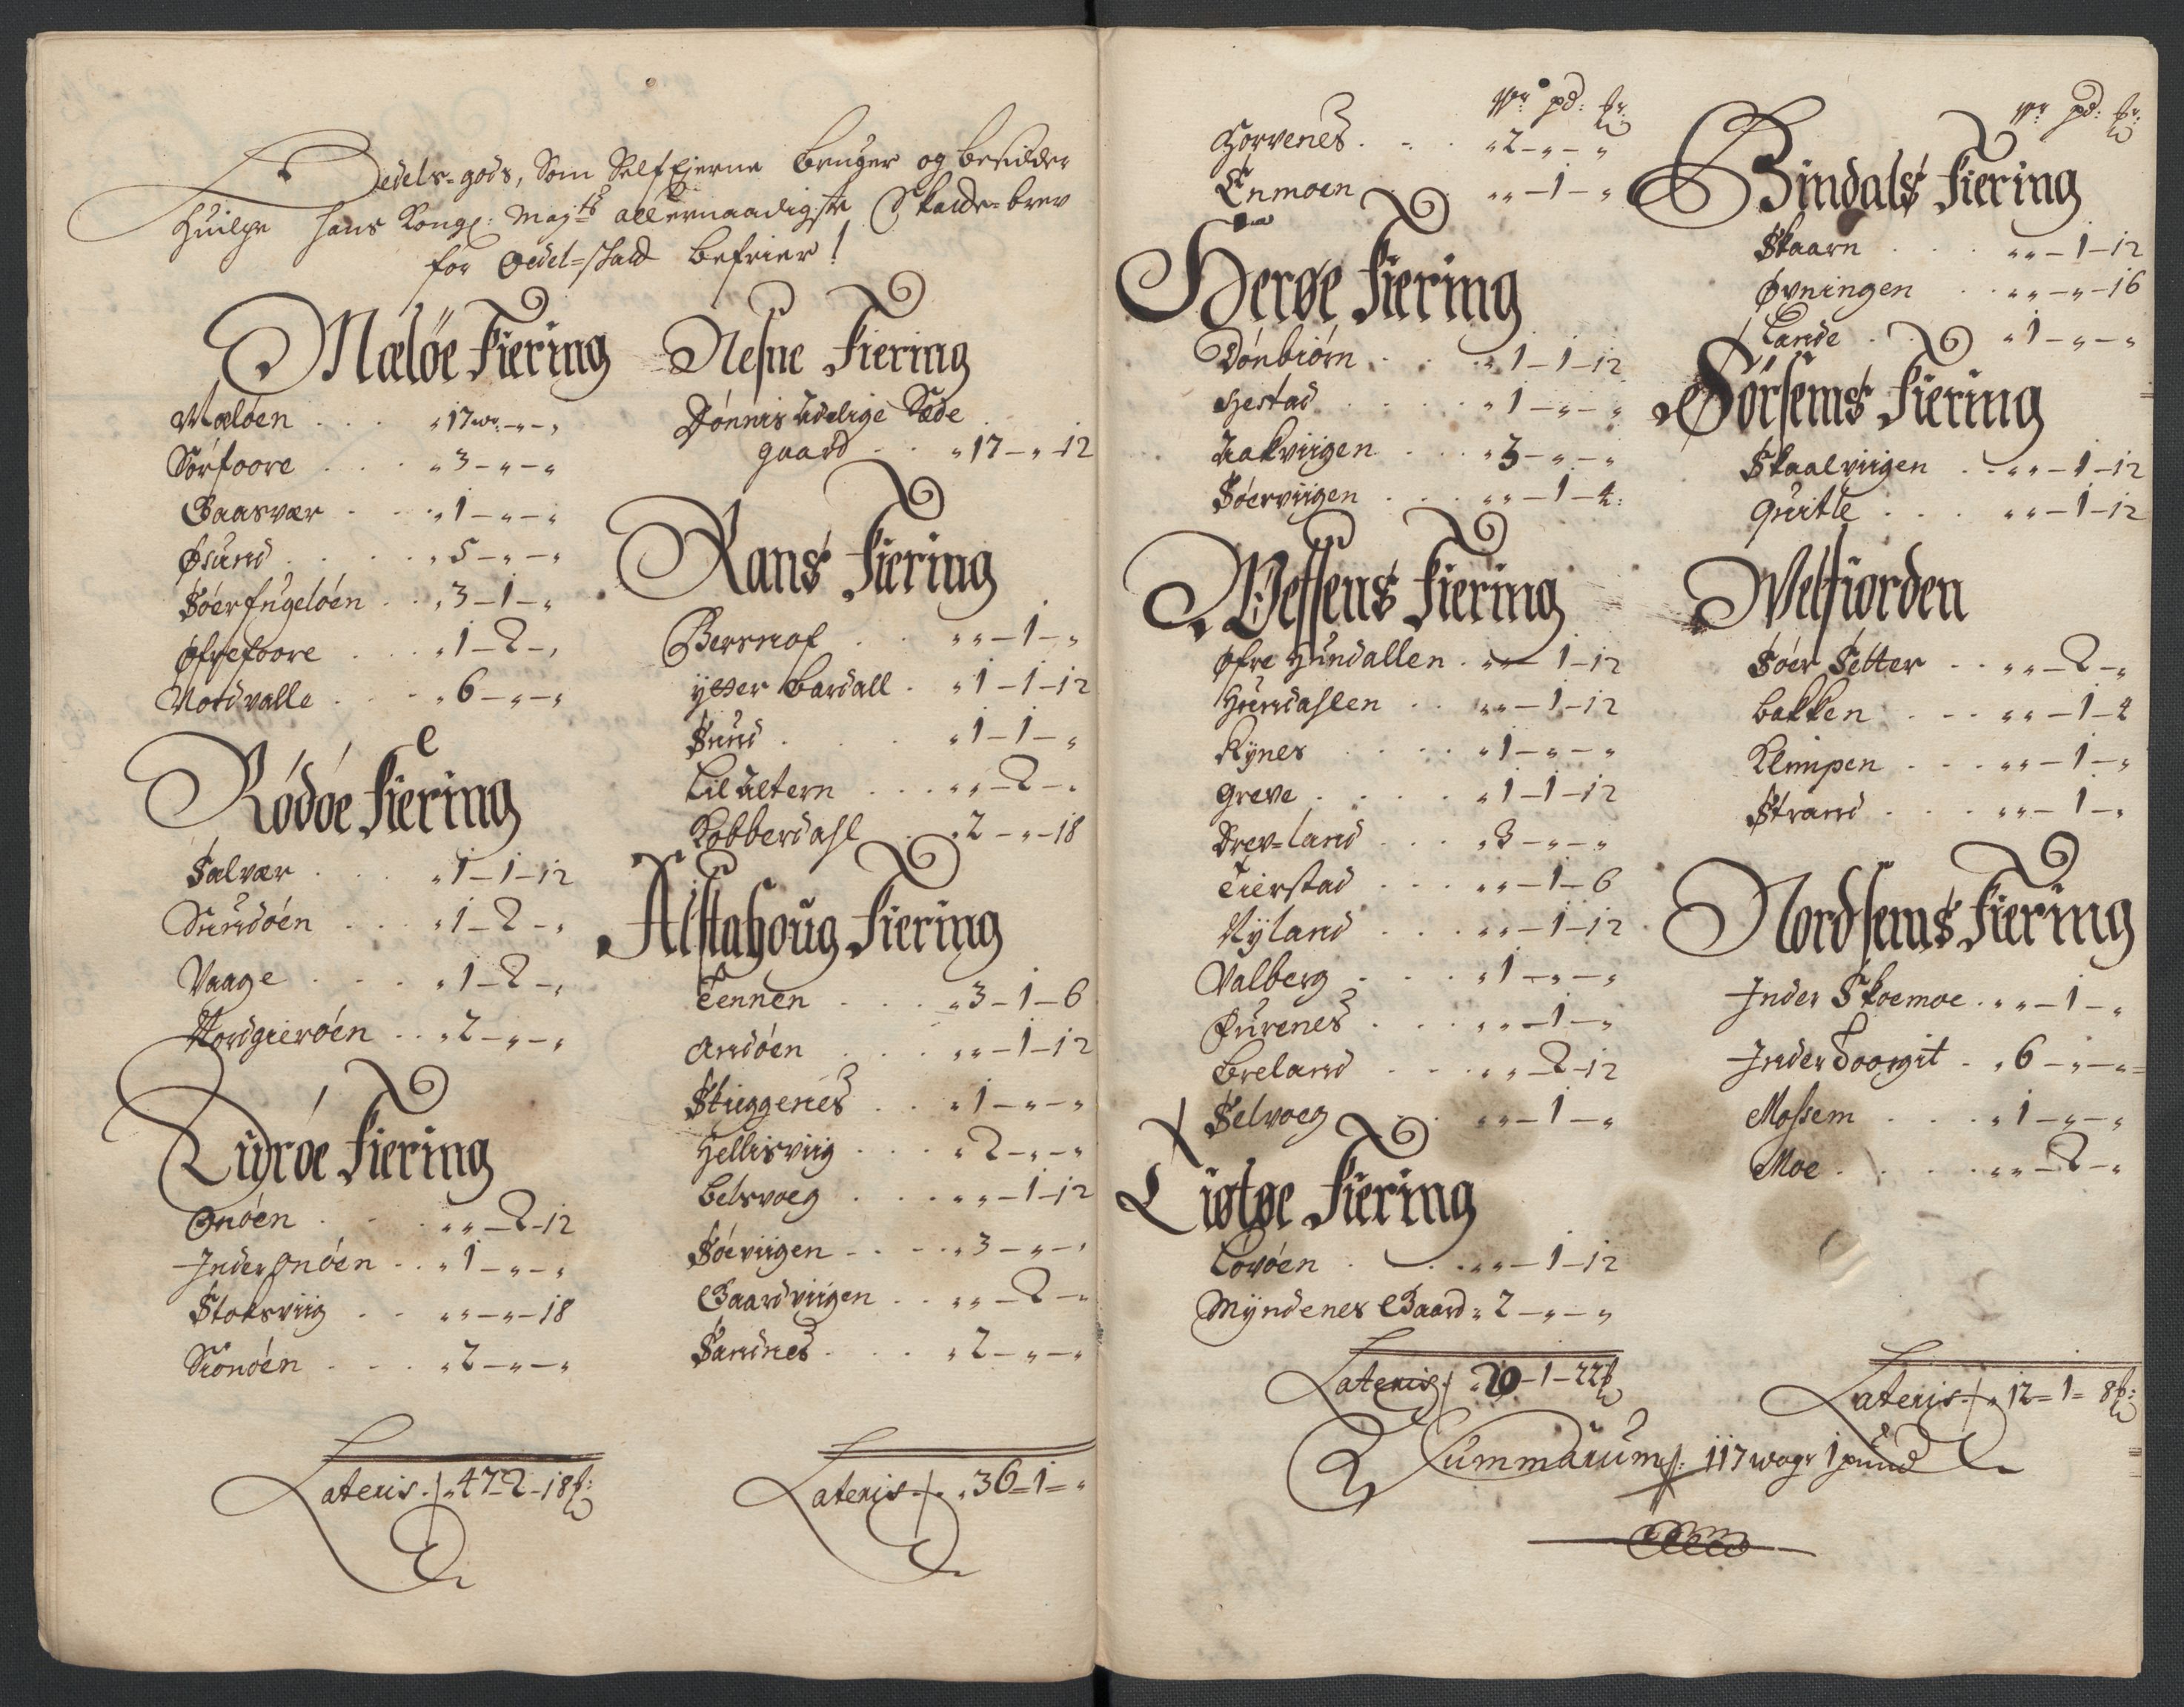 Oedels-gods, Som Selfejerne bruger og besidder
huilche hans Kongl: Maj:ts allernaadigste Skatte-brev
for Oedel-skatt befrier!
Mæløe Fiering
Mæløen . . . „17 w: - „ - „
Sørfoore . . . „3 - „ - „
Gaasvær . . „1 - „ - „
Øsund . . . . „5 - „ - „
Søerfugeløen . . „3 - 1 - „
Øfrefoore . . „1 - 2 - „
Nordvalle . . . „6 - „ - „
Rødøe Fiering
Salvær . . . „1 - 1 - 12
Sundøen . . . „1 - 2 - „
Vaage . . . . „1 - 2 - „
Nordgierøen . . „2 - „ - „
Lurøe Fiering
Onøen . . . „ „ - 2 - 12
Inder onøen . . „1 - „ - „
Stoksviig . . „ „ - „ - 18
Sionøen . . . „2 - „ - „
Lateris . „47 - 2 - 18 lb:
Nesne Fiering
Dønnis adelige Sæde
gaard . . „17 - „ - 12
Rans Fiering
Bersnof . . „ „ - 1 - „
ytter Bardall . „1 - 1 - 12
Sund . . . „1 - 1 - „
Lil altern . . . „ „ - 2 - „
Kobberdahl . „2 - „ - 18
Alstahoug Fiering
Tennen . . . „3 - 1 - 6
Andøen . . . „ „ - 1 - 12
Skieggenes . . „1 - „ - „
Hellisviig . . . „2 - „ - „
Belsvoeg . . . „ „ - 1 - 12
Søeviigen . . . „3 - „ - „
Gaardviigen . . „ „ - 2 - „
Sandnes . . . „2 - „ - „
Lateris . . „36 - 1 - „
wr: pd: lb:
Horvenes . . . „2 - „ - „
Enmoen „ „ - 1 - „
Herøe Fiering
Dønbiørn . . „1 - 1 - 12
Hestad . . . . „1 - „ - „
Aakviigen . . . „3 - „ - „
Søerviigen . . . „ „ - 1 - 4:
Vefsens Fiering
Øfre Hundallen . „ „ - 1 - 12
Hundahlen . . „ „ - 1 - 12
Kynes . . . . „1 - „ - „
Greve . . . . „1 - 1 - 12
Drev-land . . . „3 - „ - „
Eierstad . . . „ „ - 1 - 6
Nyland . . . „ „ - 1 - 12
Valberg . . . „1 - „ - „
Furenes . . . „ „ - 1 - „
Breland . . . „ „ - 2 - 12
Selvoeg . . „ „ - 1 - „
Tiøtøe Fiering
Lovøen . . . . „ „ - 1 - 12
Myndenes Gaard „2 - „ - „
Lateris „20 - 1 - 22 lb
wr: pd: lb:
Bindals Fiering
Skaarn . . . „ „ - 1 - 12
Øvningen . . „ „ - „ - 16
Lande . . „1 - „ - „
Sørsems Fiering
Skaalviigen . . „ „ - 1 - 12
Quitle . . . „ „ - 1 - 12
Velfiorden
Søer Setter . . „ „ - 2 - „
Bakken . . . „ „ - 1 - 4
Klimpen . . . „ „ - 1 - „
Strand . . . „ „ - 1 - „
Nordsems Fiering
Inder Skoemoe . . „ „ - 1 - „
Inder Toorgit . „6 - „ - „
Mossem . . . „1 - „ - „
Moe . . . . „ „ - 2 - „
Lateris . „12 - 1 - 8 lb:
Summarum: 117 wog: 1 pund